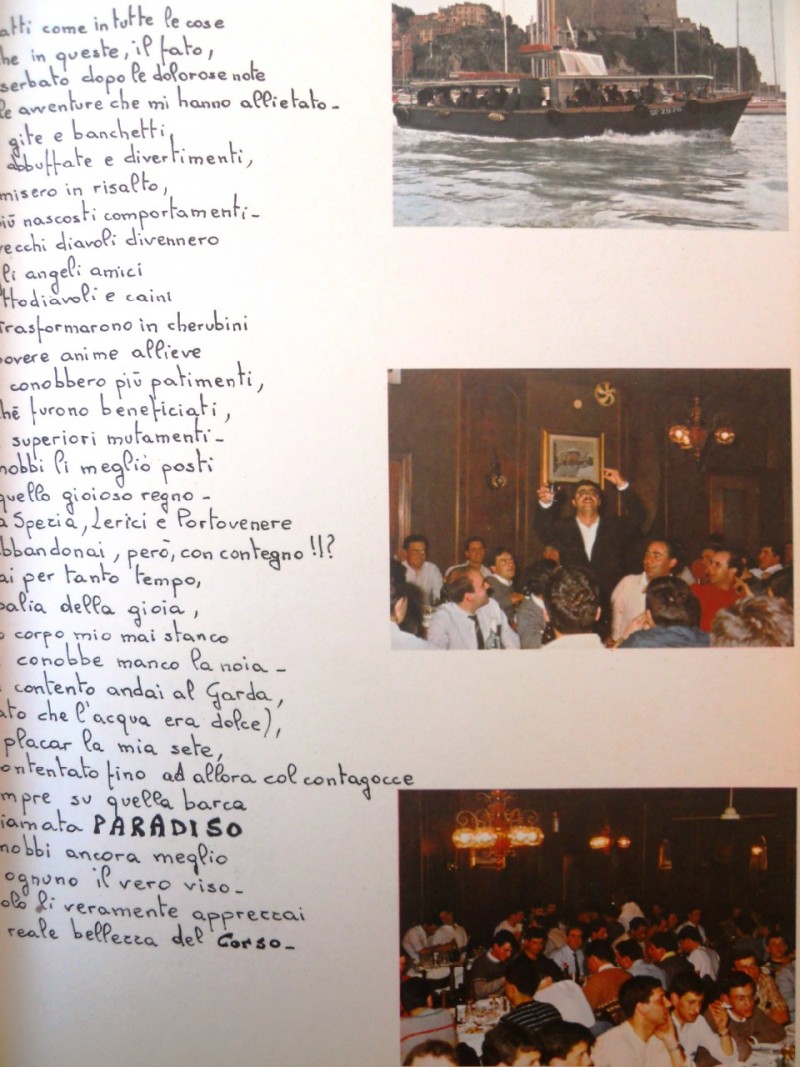 atti come in tutte le cose
he in queste, il fato,
serbato dopo le dolorose note
le avventure che mi hanno allietato-
gite e banchetti,
abbuffate e divertimenti,
misero in risalto,
più nascosti comportamenti-
vecchi diavoli divennero
li angeli amici
ttodiavoli e caini
trasformarono in cherubini
povere anime allieve
conobbero più patimenti,
hé furono beneficiati,
superiori mutamenti-
nobbi li meglio posti
quello gioioso regno-
a Spezia, Lerici e Portovenere
bbandonai, però, con contegno!!?
ai per tanto tempo,
balia della gioia,
o corpo mio mai stanco
conobbe manco la noia-
contento andai al Garda,
ato che l'acqua era dolce),
placar la mia sete,
ontentato fino ad allora col contagocce
mpre su quella barca
iamata PARADISO
nobbi ancora meglio
ognuno il vero viso-
olo li veramente apprezzai
reale bellezza del Corso-